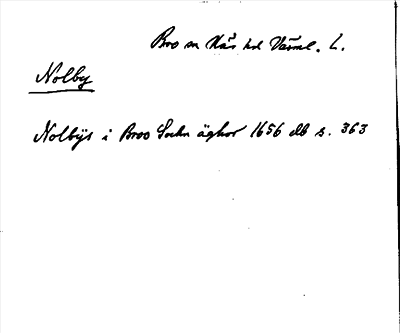 Bro sn Näs hd Värml. L.
Nolby
Nolbijs i Broo Sochn äghor 1656 db s. 363